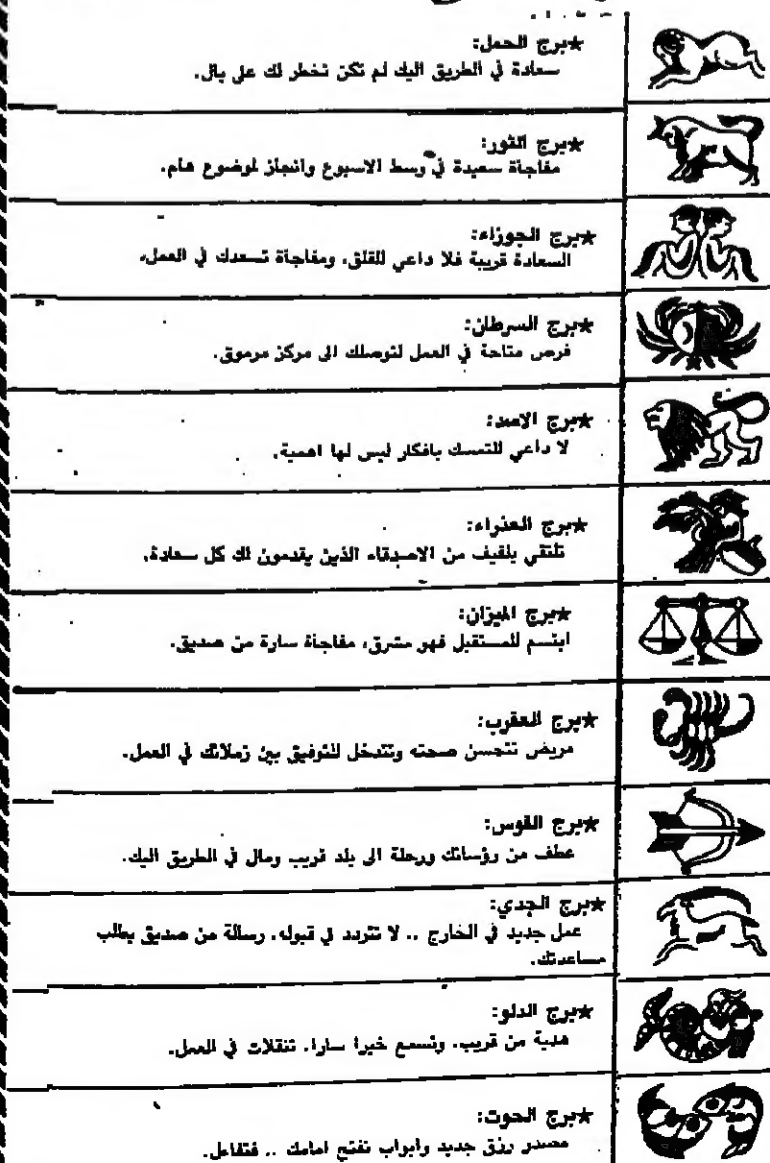 ★برج الحمل:
سعادة في الطريق اليك لم تكن تخطر لك على بال.
★برج الثور:
مفاجاة سعيدة في وسط الاسبوع وانجاز لموضوع هام.
★برج الجوزاء:
السعادة قريبة فلا داعي للقلق، ومفاجاة تسعدك في العمل.
★برج السرطان:
فرص متاحة في العمل لتوصلك الى مركز مرموق.
★برج الاسد:
لا داعي للتمسك بافكار ليس لها اهمية.
★برج العذراء:
تلتقي بلفيف من الاصدقاء الذين يقدمون لك كل سعادة.
★برج الميزان:
ابتسم للمستقبل فهو مشرق، مفاجاة سارة من صديق.
★برج العقرب:
مريض تتحسن صحته وتتدخل للتوفيق بين زملائك في العمل.
★برج القوس:
عطف من رؤسائك ورحلة الى بلد قريب ومال في الطريق اليك.
★برج الجدي:
عمل جديد في الخارج .. لا تتردد في قبوله. رسالة من صديق يطلب
مساعدتك.
★برج الدلو:
هدية من قريب. وتسمع خبرا سارا. تنقلات في العمل.
★برج الحوت:
مصدر رزق جديد وابواب تفتح امامك .. فتفاعل.